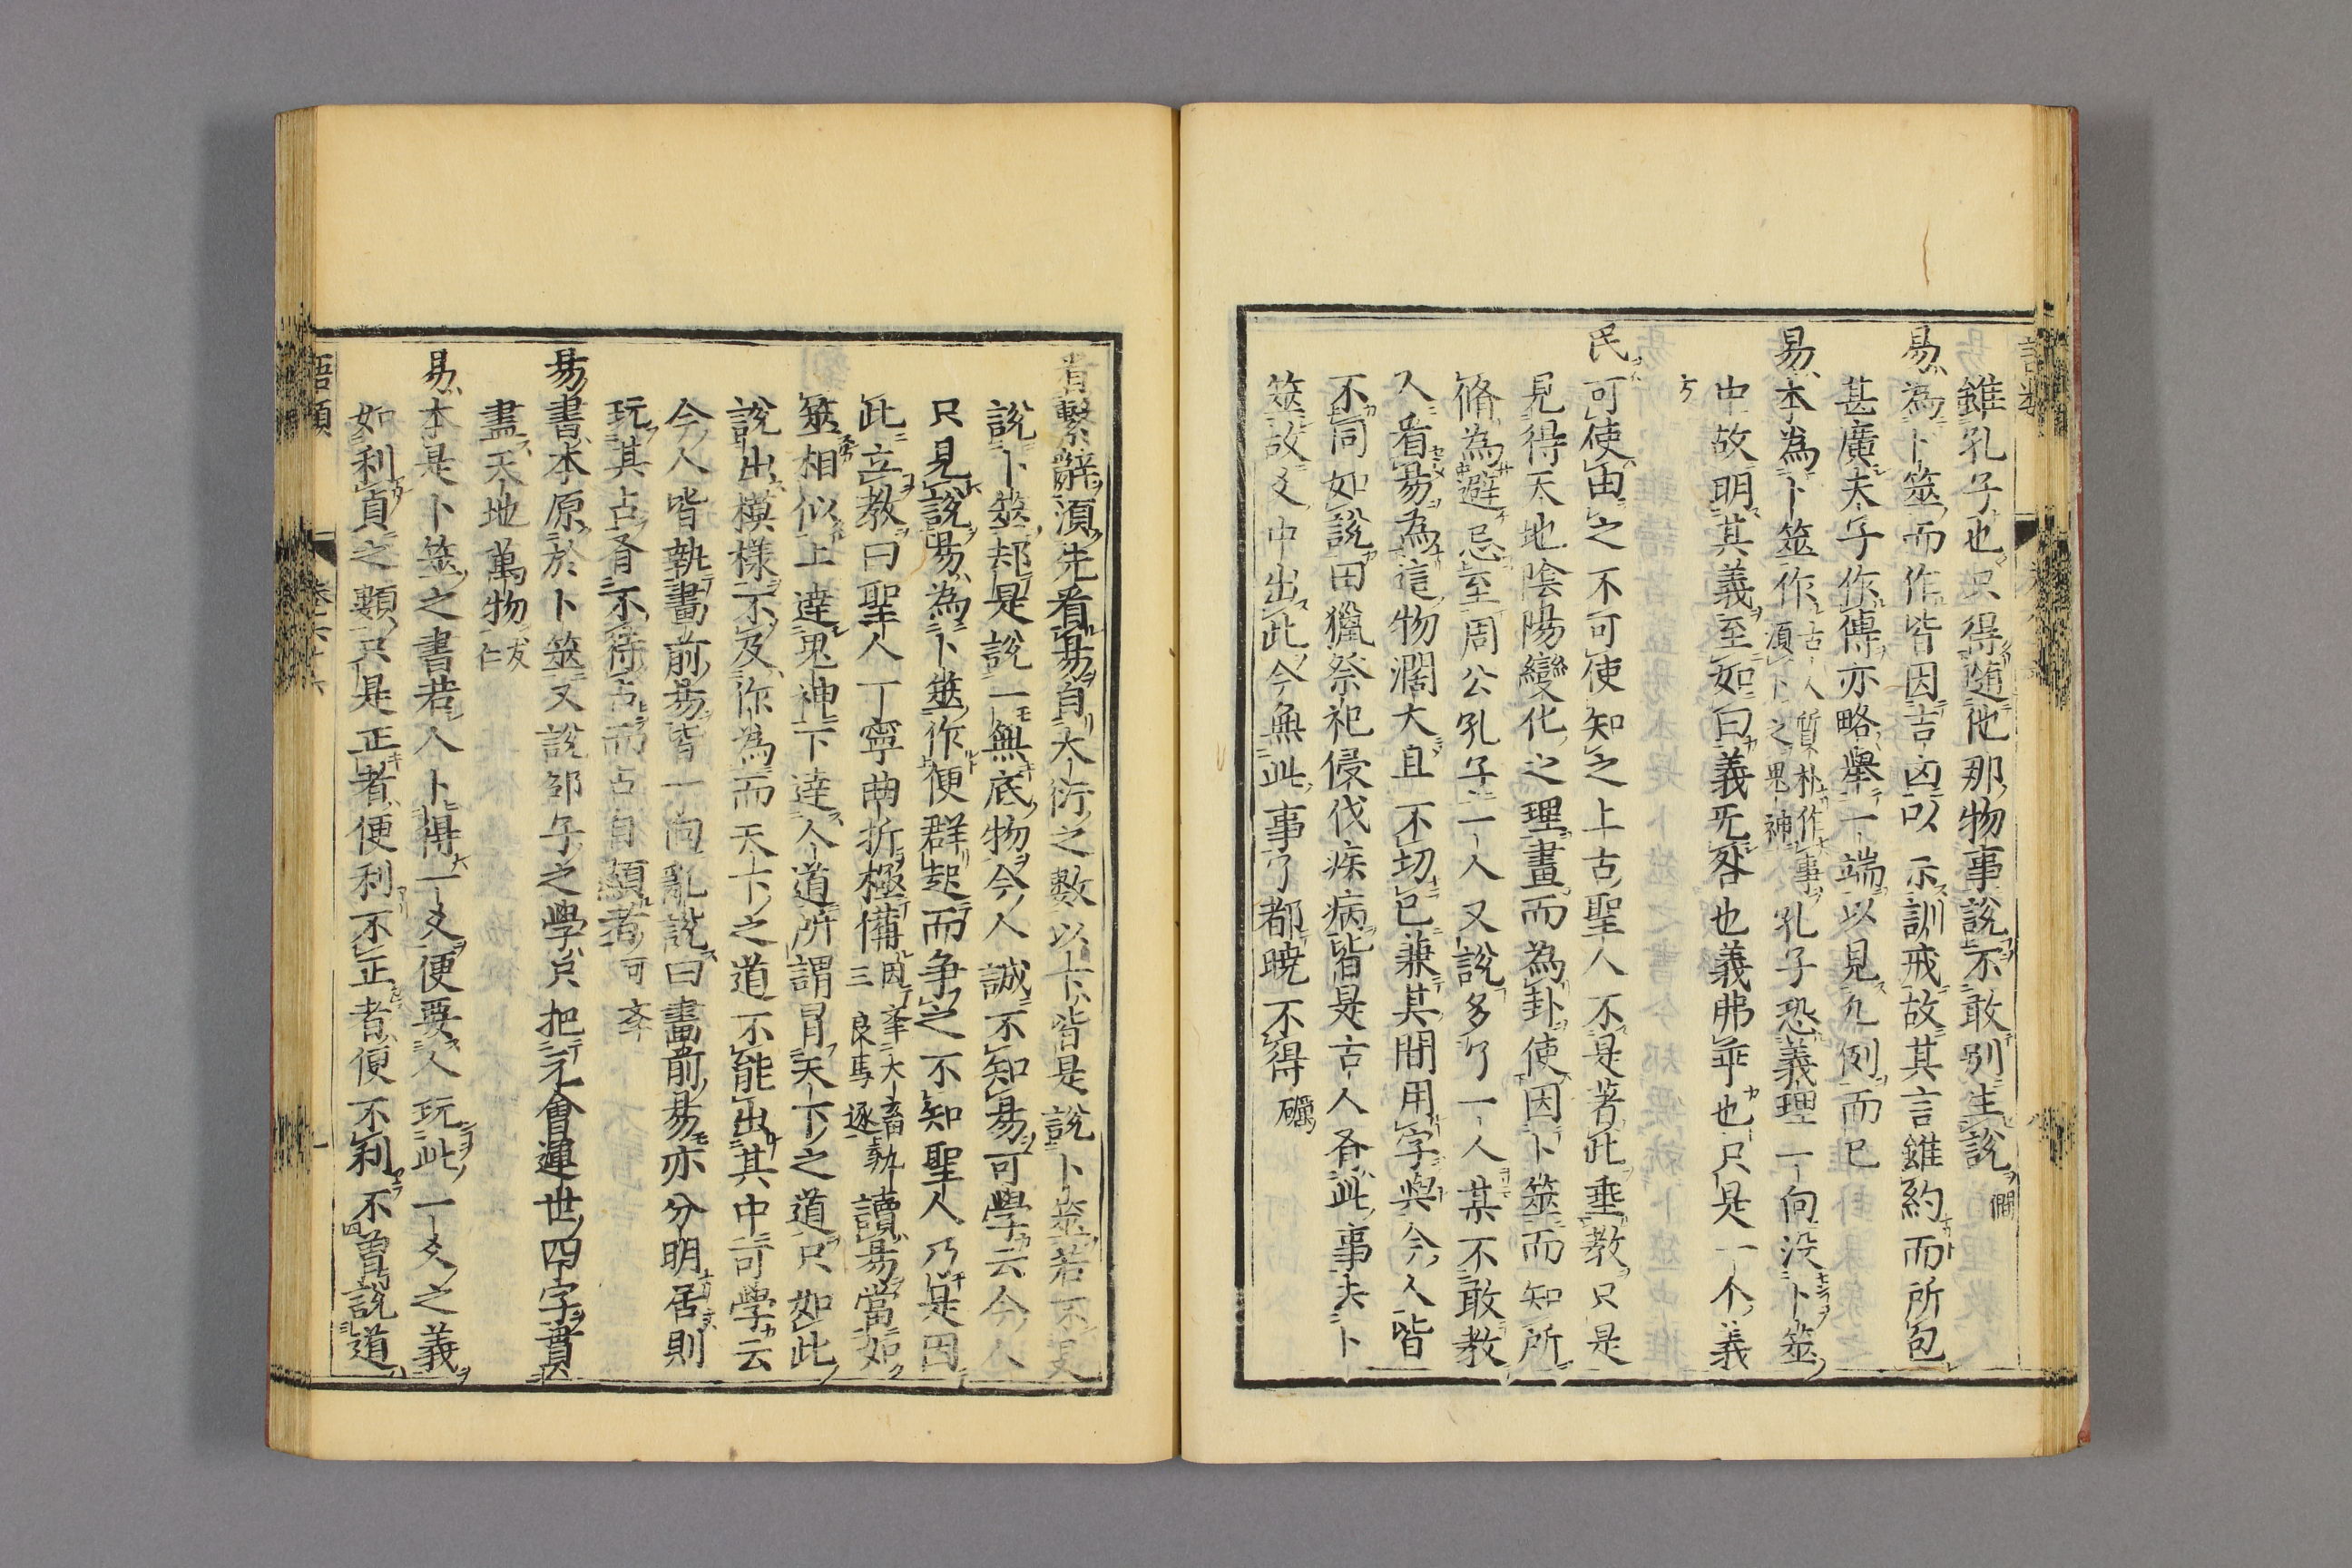 雖孔子也只得随他那物事說不敢別生說 僩
易為卜筮而作皆因吉凶以示訓戒故其言雖約而所包
甚廣夫子作傳亦略舉一端以見凡例而已
易本為卜筮作古人質朴作事須卜之鬼神孔子恐義理一向没卜筮
中故明其義至如曰義无咎也義弗乖也只是一个義
方
民可使由之不可使知之上古聖人不是著此垂教只是
見得天地陰陽變化之理畫而為卦使因卜筮而知所
脩為避忌至周公孔子一人又說多了一人某不敢教
人看易為這物濶大且不切已兼其間用字與今人皆
不同如說田獵祭祀侵伐疾病皆是古人有此事去卜
筮故爻中出此今無此事了都暁不得 礪
看繫辭湏先看易自大衍之數以下皆是說卜筮若不是
說卜筮却是說一無底物今人誠不知易可學云今人
只見說易為卜筮作便群起而争之不知聖人乃是因
此立教曰聖人丁寧曲折極備因本大畜九三良馬逐讀易當如
筮相似上達鬼神下達人道所謂冒天下之道只如此
說出模様不及作為而天下之道不能出其中可學云
今人皆執畫前易皆一向亂說曰畫前易亦分明居則
玩其占有不待占而占自顯者 可孝
易書本原於卜筮又說邵子之學只把元會運世四字貫
盡天地萬物 友仁
易本是卜筮之書若人卜得一爻便要人玩此一爻之義
如利貞之類只是正者便利不正者便不利不曽說道
語類 卷六十六 一